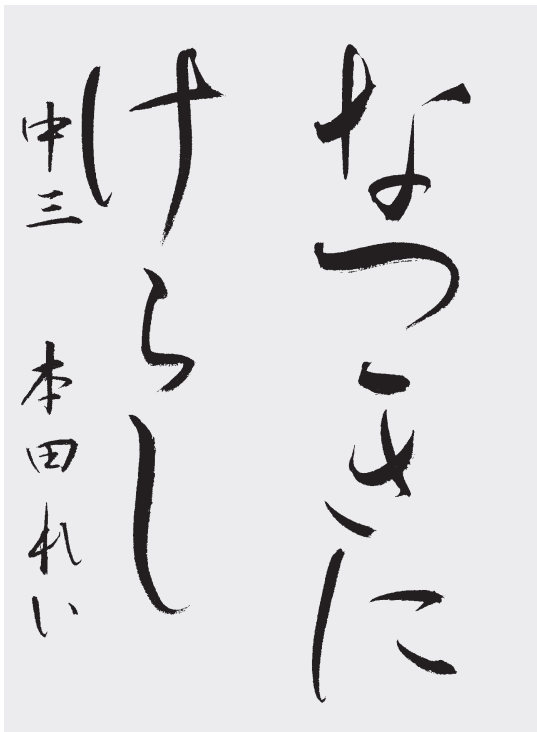 なつきに
けらし
中三 本田れい